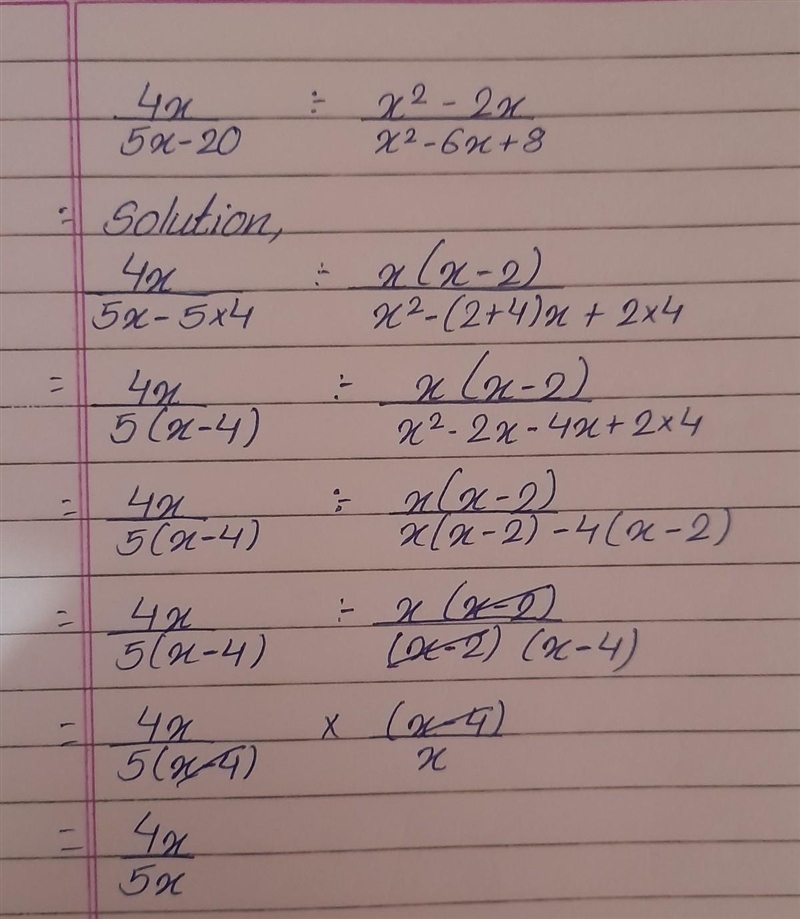 4x/(5x-20) ÷ (x² - 2x)/(x² - 6x + 8)
= Solution,
4x/(5x - 5×4) ÷ x(x-2)/(x² - (2+4)x + 2×4)
= 4x/5(x-4) ÷ x(x-2)/(x² - 2x - 4x + 2×4)
= 4x/5(x-4) ÷ x(x-2)/(x(x-2) - 4(x-2))
= 4x/5(x-4) ÷ x(x-2)/(x-2)(x-4)
= 4x/5(x-4) × (x-4)/x
= 4x/5x